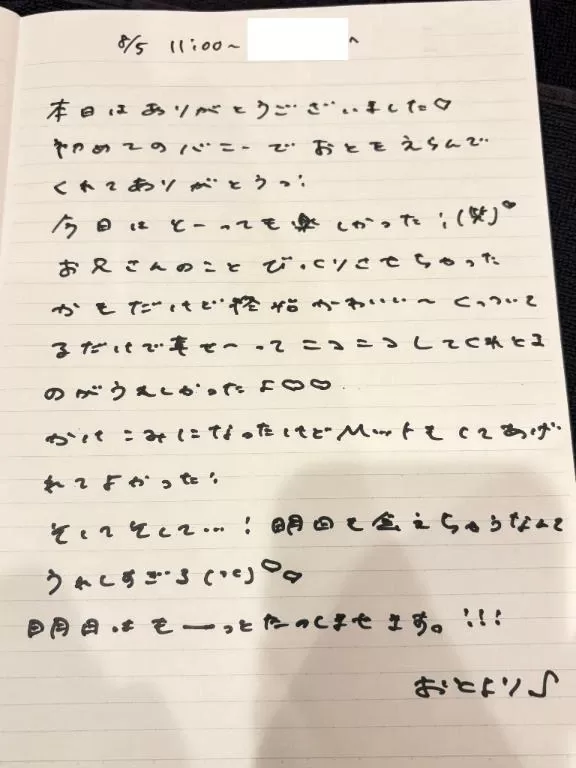 8/5 11:00~ へ
本日はありがとうございました♡
初めてのバニーでおとをえらんで
くれてありがとうっ!
今日はとーっても楽しかった!(笑)♡
お兄さんのことびっくりさせちゃった
かもだけど終始かわいい〜くっついて
るだけで幸せ〜ってニコニコしてくれとる
のがうれしかったよ♡♡
かけこみになったけどMットもしてあげ
れてよかった!
そしてそして…!明日も会えちゃうなんて
うれしすぎる()♡♡
明日はもーっとたのしませます。!!!
おとより♪